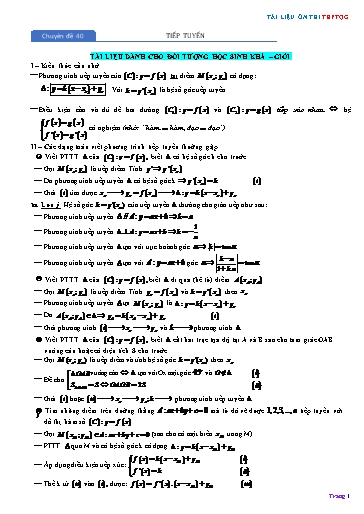 TÀI LIỆU ÔN THI THPTQG
Chuyên đề 40 TIẾP TUYẾN
TÀI LIỆU DÀNH CHO ĐỐI TƯỢNG HỌC SINH KHÁ – GIỎI
I – Kiến thức cần nhớ
— Phương trình tiếp tuyến của (C): y = f(x) tại điểm M(x₀; y₀) có dạng:
Δ: y = k(x − x₀) + y₀ Với k = y'(x₀) là hệ số góc tiếp tuyến
— Điều kiện cần và đủ để hai đường (C₁): y = f(x) và (C₂): y = g(x) tiếp xúc nhau ⇔ hệ
{f(x) = g(x)
f'(x) = g'(x) có nghiệm (nhớ: "hàm = hàm, đạo = đạo")
II – Các dạng toán viết phương trình tiếp tuyến thường gặp
Viết PTTT Δ của (C): y = f(x), biết Δ có hệ số góc k cho trước
— Gọi M(x₀; y₀) là tiếp điểm. Tính y' ⇒ y'(x₀)
— Do phương trình tiếp tuyến Δ có hệ số góc k ⇒ y'(x₀) = k (i)
— Giải (i) tìm được x₀ → y₀ = f(x₀) → Δ: y = k(x − x₀) + y₀
Lưu ý. Hệ số góc k = y'(x₀) của tiếp tuyến Δ thường cho gián tiếp như sau:
— Phương trình tiếp tuyến Δ // d: y = ax + b ⇒ k = a
— Phương trình tiếp tuyến Δ ⊥ d: y = ax + b ⇒ k = −1/a
— Phương trình tiếp tuyến Δ tạo với trục hoành góc α ⇒ |k| = tan α
— Phương trình tiếp tuyến Δ tạo với d: y = ax + b góc α ⇒ |(k − a)/(1 + ka)| = tan α
Viết PTTT Δ của (C): y = f(x), biết Δ đi qua (kẻ từ) điểm A(x_A; y_A)
— Gọi M(x₀; y₀) là tiếp điểm. Tính y₀ = f(x₀) và k = y'(x₀) theo x₀
— Phương trình tiếp tuyến Δ tại M(x₀; y₀) là Δ: y = k(x − x₀) + y₀
— Do A(x_A; y_A) ∈ Δ ⇒ y_A = k(x_A − x₀) + y₀ (i)
— Giải phương trình (i) → x₀ → y₀ và k → phương trình Δ
Viết PTTT Δ của (C): y = f(x), biết Δ cắt hai trục tọa độ tại A và B sao cho tam giác OAB
vuông cân hoặc có diện tích S cho trước
— Gọi M(x₀; y₀) là tiếp điểm và tính hệ số góc k = y'(x₀) theo x₀
— Đề cho {ΔOAB vuông cân ⇔ Δ tạo với Ox một góc 45° và O ∉ Δ (i)
S_OAB = S ⇔ OA.OB = 2S (ii)
— Giải (i) hoặc (ii) → x₀ → y₀; k → phương trình tiếp tuyến Δ
Tìm những điểm trên đường thẳng d: ax + by + c = 0 mà từ đó vẽ được 1,2,3,...,n tiếp tuyến với
đồ thị hàm số (C): y = f(x)
— Gọi M(x_M; y_M) ∈ d: ax + by + c = 0 (sao cho có một biến x_M trong M)
— PTTT Δ qua M và có hệ số góc k có dạng Δ: y = k(x − x_M) + y_M
— Áp dụng điều kiện tiếp xúc: {f(x) = k(x − x_M) + y_M (i)
f'(x) = k (ii)
— Thế k từ (ii) vào (i), được: f(x) = f'(x).(x − x_M) + y_M (iii)
Trang 1